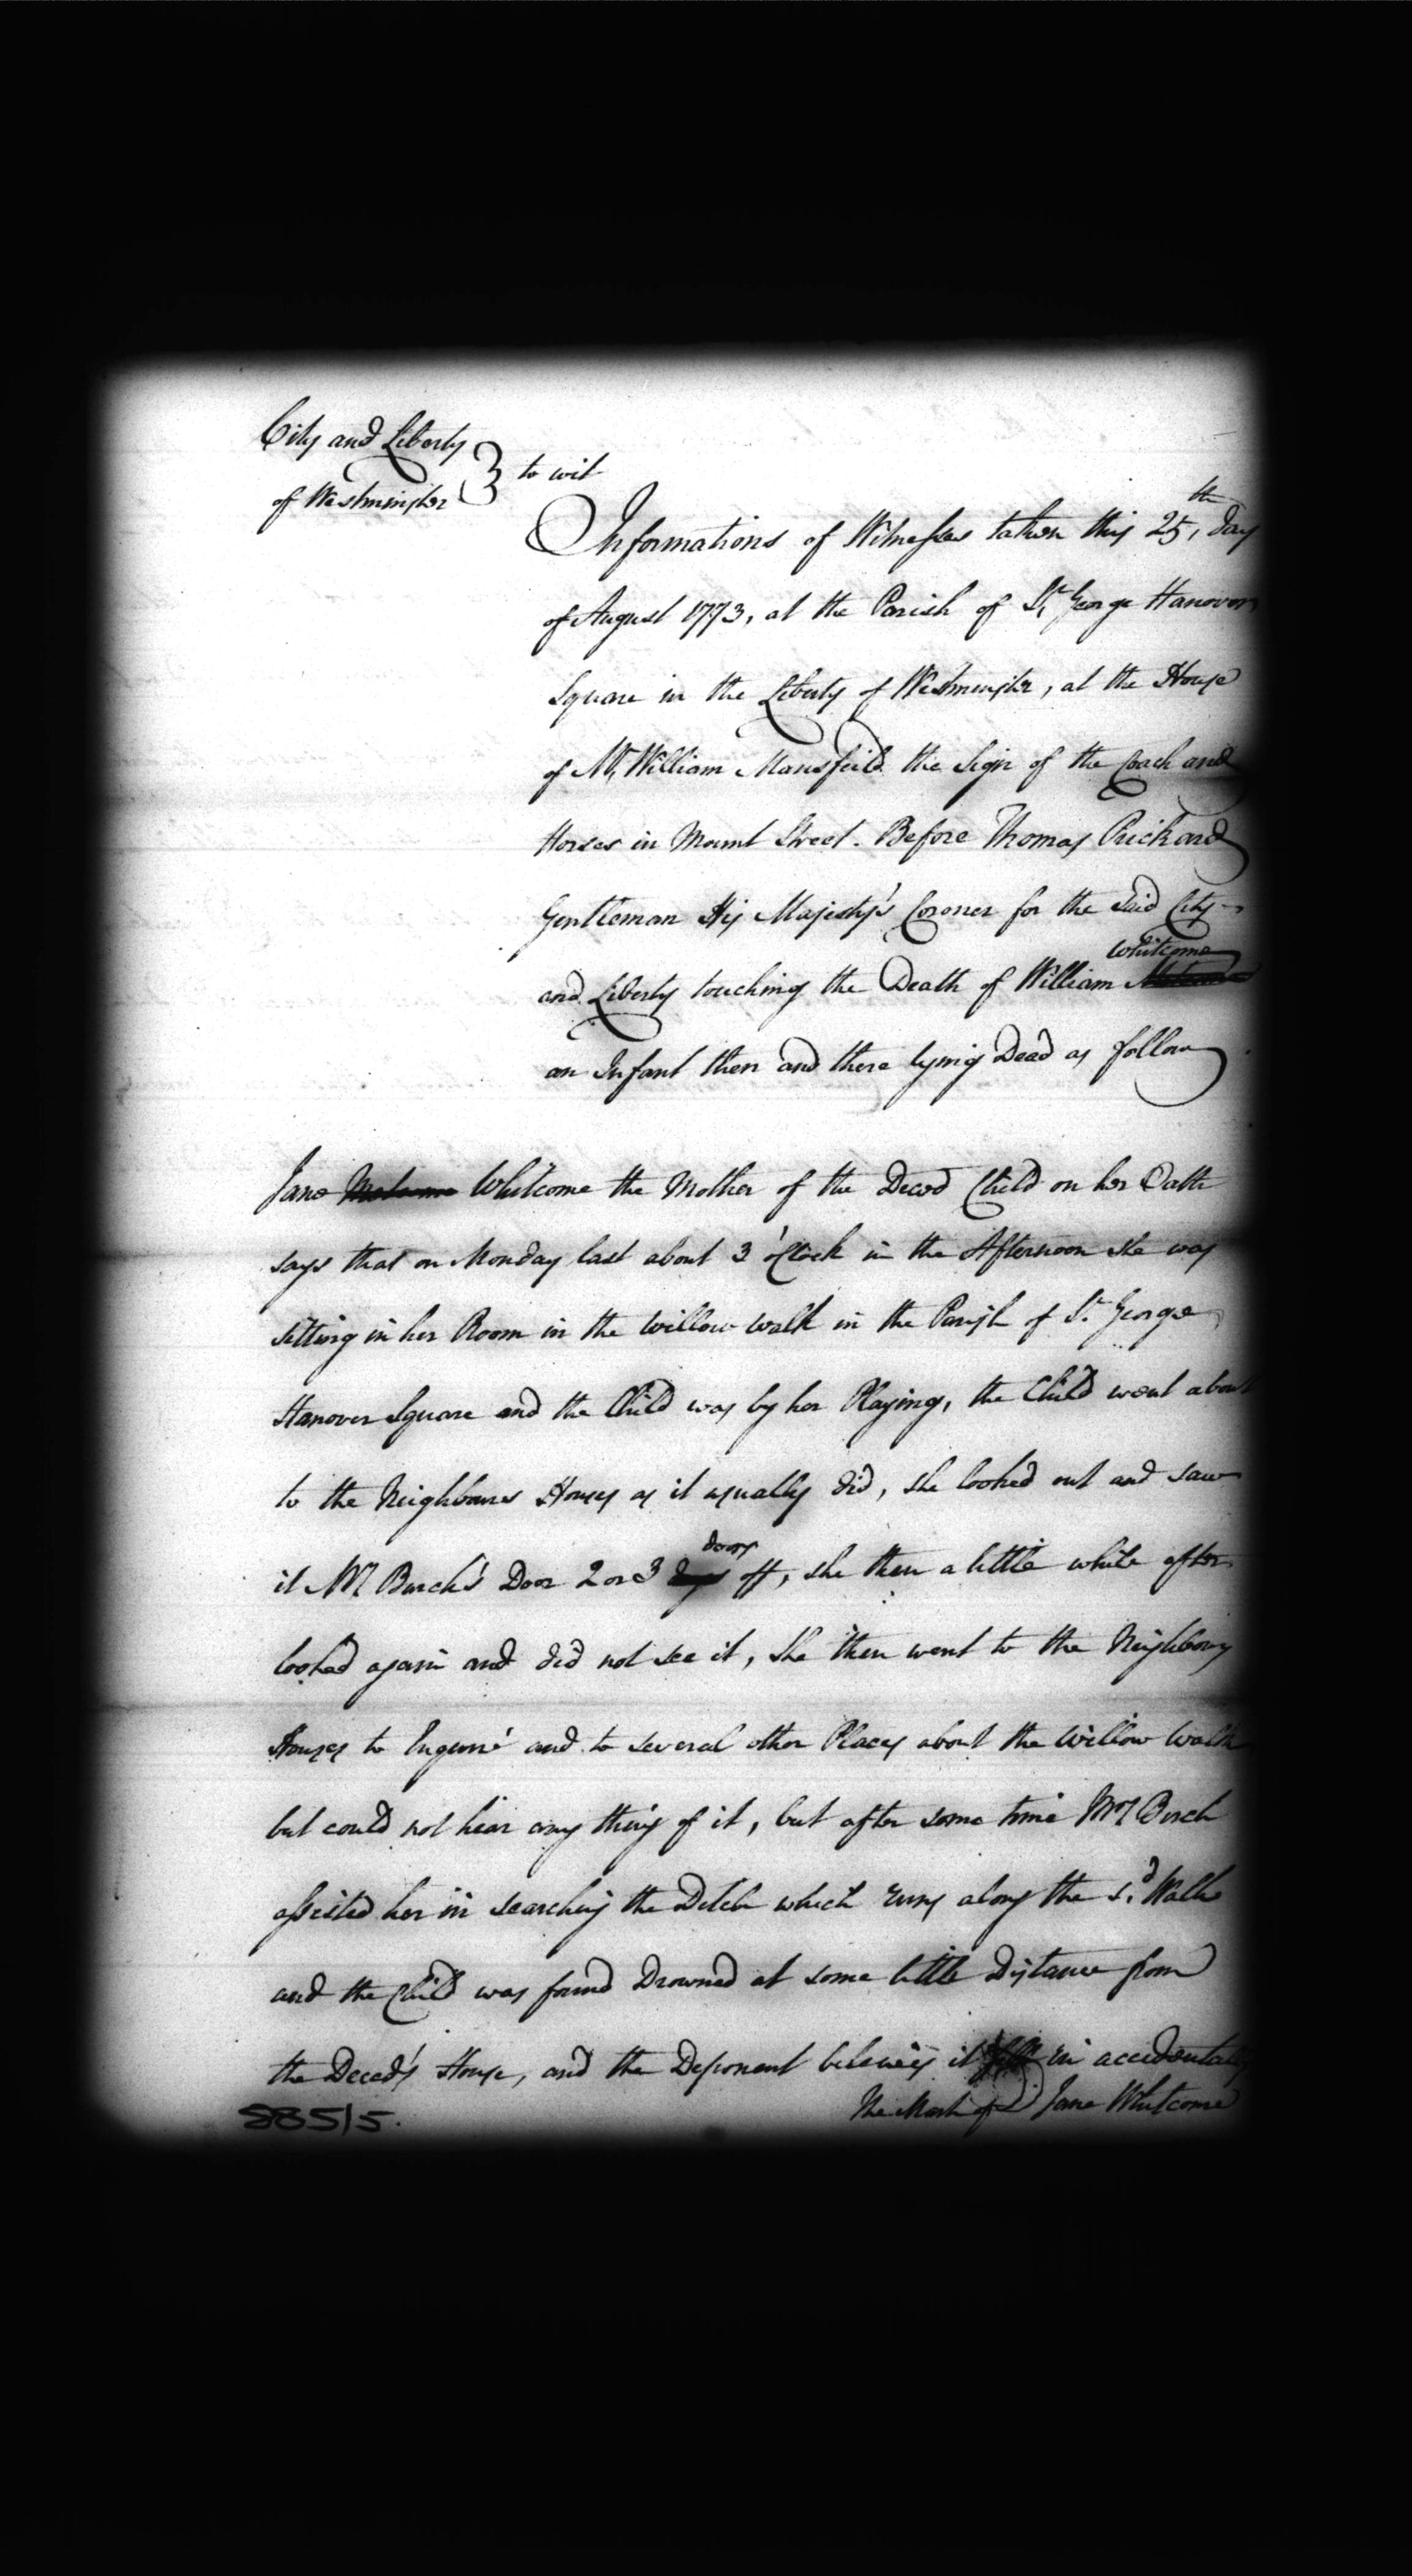 City and Liberty
of Westminster } to wit
Informations of Witnesses taken this 25th day
of August 1773, at the Parish of St. George Hanover
Square in the Liberty of Westminster, at the House
of Mr. William Mansfeild the Sign of the Coach and
Horses in Mount Street. Before Thomas Prickard
Gentleman His Majesty's Coroner for the said City
Whitcome
and Liberty touching the Death of William
an Infant then and there lying Dead as follow
Jane Whitcome the Mother of the Deced Child on her Oath
says that on Monday last about 3 o'Clock in the Afternoon she was
sitting in her Room in the Willow Walk in the Parish of St. George
Hanover Square and the Child was by her Playing, the Child went about
to the Neighbours Houses as it usually did, she looked out and saw
doors
it Mrs Burch's Door 2 or 3 off, she then a little while after
looked again and did not see it, she then went to the Neighbours
Houses to Inquire and to several other Places about the Willow Walk
but could not hear any thing of it, but after some time Mrs Birch
assisted her in searching the Ditch which runs along the sd. Walk
and the Child was found Drowned at some little Distance from
the Deced's House, and the Deponent beleives it fell in accidentally
The Mark of Jane Whitcome
885/5.